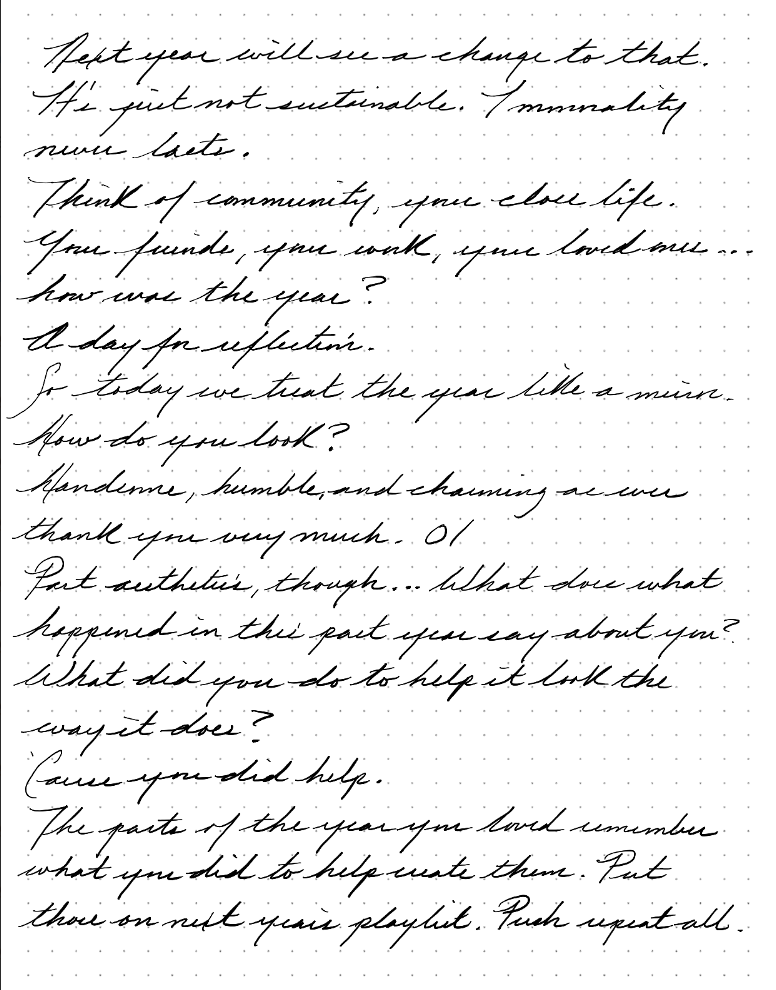 Next year will see a change to that.
It's just not sustainable. Immorality
never lasts.
Think of community, your close life.
Your friends, your work, your loved ones...
how was the year?
A day for reflection.
So today we treat the year like a mirror.
How do you look?
Handsome, humble, and charming as ever
thank you very much. Ol
Past aesthetics, though... What does what
happened in this past year say about you?
What did you do to help it look the
way it does?
'Cause you did help.
The parts of the year you loved remember
what you did to help create them. Put
those on next year's playlist. Push repeat all.